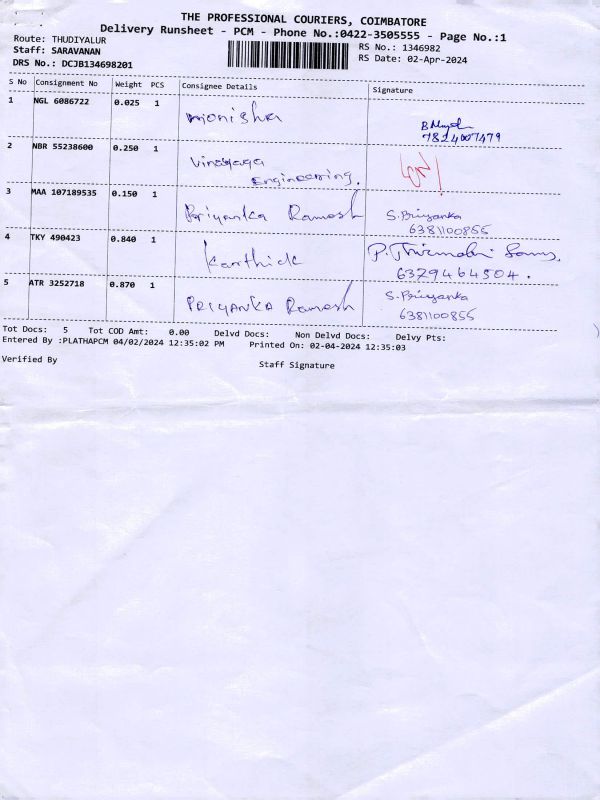 THE PROFESSIONAL COURIERS, COIMBATORE
Delivery Runsheet - PCM - Phone No.:0422-3505555 - Page No.:1
Route: THUDIYALUR
Staff: SARAVANAN
DRS No.: DCJB134698201
RS No.: 1346982
RS Date: 02-Apr-2024
S No Consignment No Weight PCS Consignee Details Signature
1 NGL 6086722 0.025 1 monisha
7824007479
2 NBR 55238600 0.250 1 Vinayaga
engineering.
3 MAA 107189535 0.150 1 Priyanka Ramesh S.Priyanka
6381100855
4 TKY 490423 0.840 1 Karthick P.
6329464504.
5 ATR 3252718 0.870 1 PRIYANKA Ramesh S.Priyanka
6381100855
Tot Docs: 5 Tot COD Amt: 0.00 Delvd Docs: Non Delvd Docs: Delvy Pts:
Entered By :PLATHAPCM 04/02/2024 12:35:02 PM Printed On: 02-04-2024 12:35:03
Verified By
Staff Signature